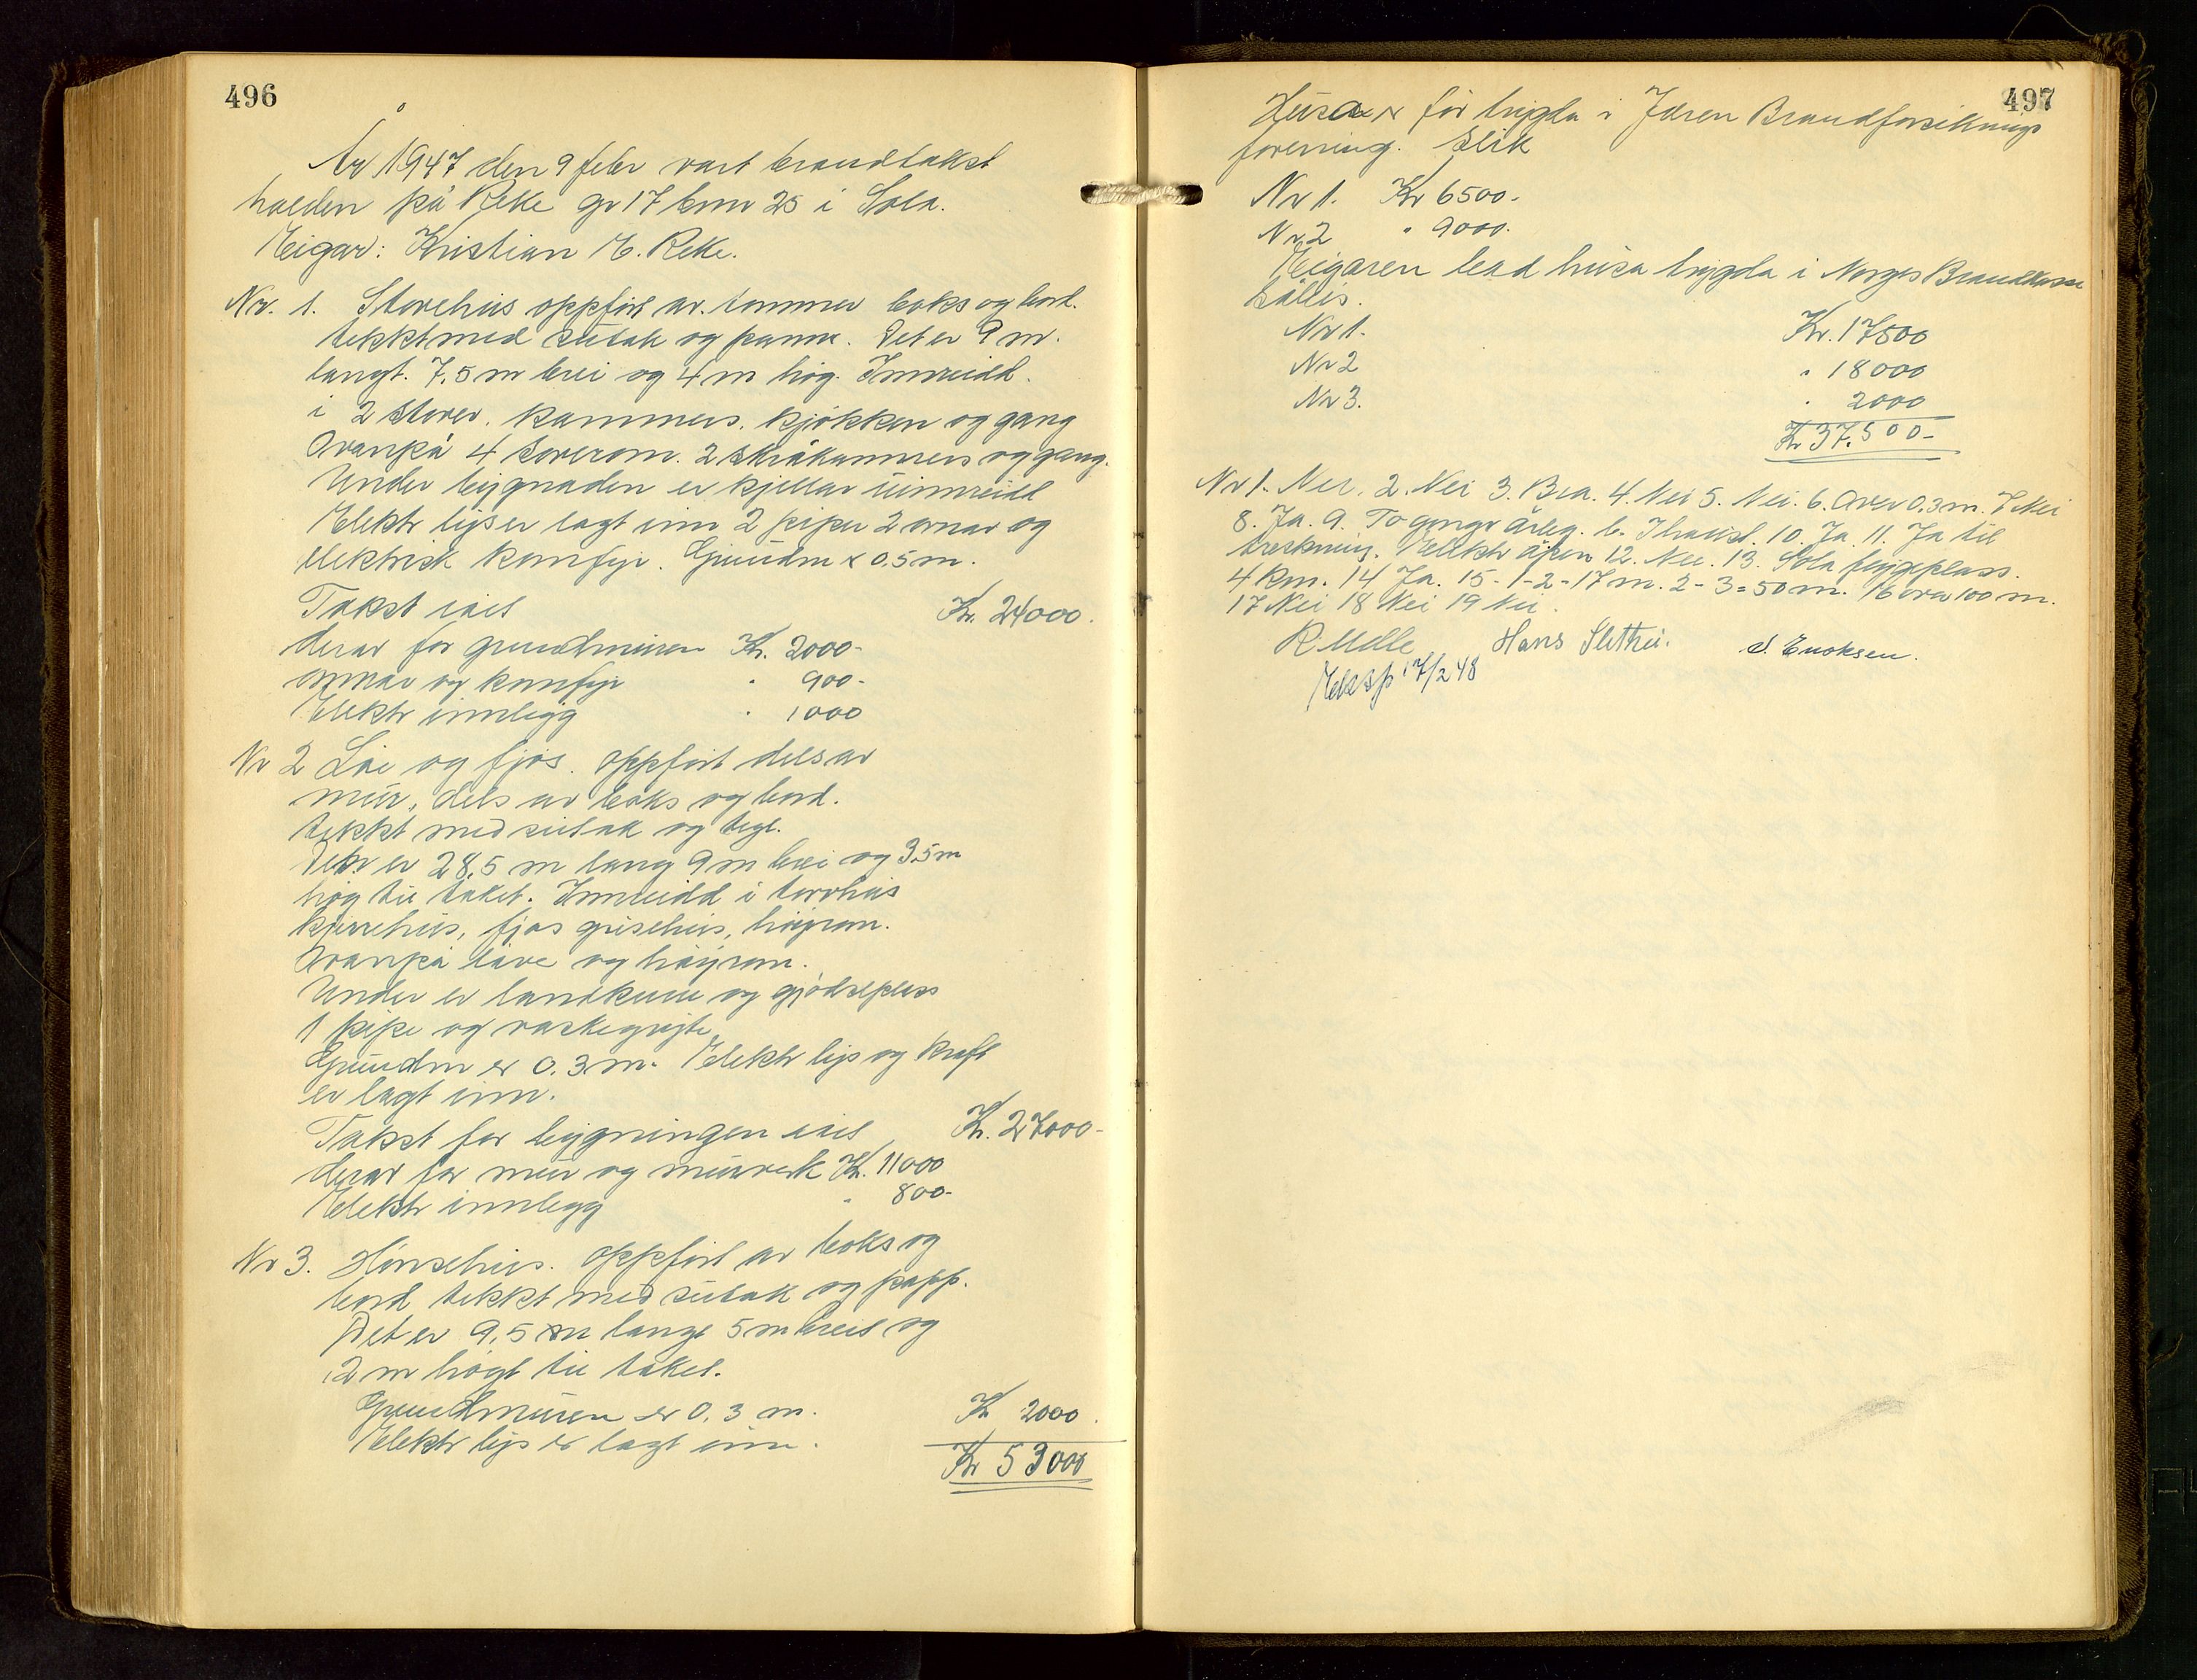 496
År 1947 den 9 febr vart brandtakst
halden på Reke gr 17 bnr 25 i Sola.
Eigar: Kristian E. Reke.
Nr. 1. Storehus oppført av tømmer boks og bord.
tekkt med sutak og panne. Det er 9 m.
langt. 7,5 m brei og 4 m høg. Innreidd
i 2 stover, kammers, kjøkken og gang
Ovanpå 4 soverom. 2 skråkammers og gang.
Under bygnaden er kjellar uinnreidt
Elektr lys er lagt inn 2 piper 2 omnar og
elektrisk komfyr. Grundm x 0.5 m.
Takst i alt Kr. 24000.
derav for grundmuren Kr. 2000-
omnar og komfyr " 900-
Elektr innlegg " 1000
Nr 2 Løe og fjøs. oppført dels av
mur, dels av boks og bord.
tekkt med sutak og tegl.
Det er 28,5 m lang 9 m brei og 3.5 m
høg til taket. Innreidd i torvhus
kjerrehus, fjøs grisehus, høyrom.
Ovanpå låve og høyrom.
Under er landkum og gjødselpless
1 pipe og vaskegryte
Grundm er 0.3 m. Elektr lys og kraft
er lagt inn.
Takst for bygningen i alt Kr. 27000-
derav for mur og murverk Kr. 11000
Elektr innlegg " 800-
Nr 3. Hønsehus. oppført av boks og
bord tekkt med sutak og papp.
Det er 9,5 m langt 5 m breit og
2 m høgt til taket.
Grundmuren er 0,3 m. Kr 2000.
Elektr lys er lagt inn.
Kr 53000
497
Husa er før trygda i Jæren Brandforsiknings
forening. slik
Nr 1. Kr 6500-
Nr 2 " 9000.
Eigaren bad husa trygda i Norges Brandkasse
såleis.
Nr 1. Kr. 17500
Nr 2 " 18000
Nr 3. " 2000
Kr 37.500-
Nr 1. Nei. 2. Nei 3. Bra. 4. Nei 5. Nei. 6. Over 0,3 m. 7 Nei
8. Ja. 9. To gonger årleg. b. I haust. 10. Ja. 11. Ja til
treskning. Elektr åpen 12. Nei. 13. Sola flygeplass.
4 km. 14 Ja. 15- 1-2-17 m. 2-3=50 m. 16 over 100 m.
17 Nei 18 Nei 19 Nei.
Hans Slethei. S. Enoksen.
Eksp 17/2 48